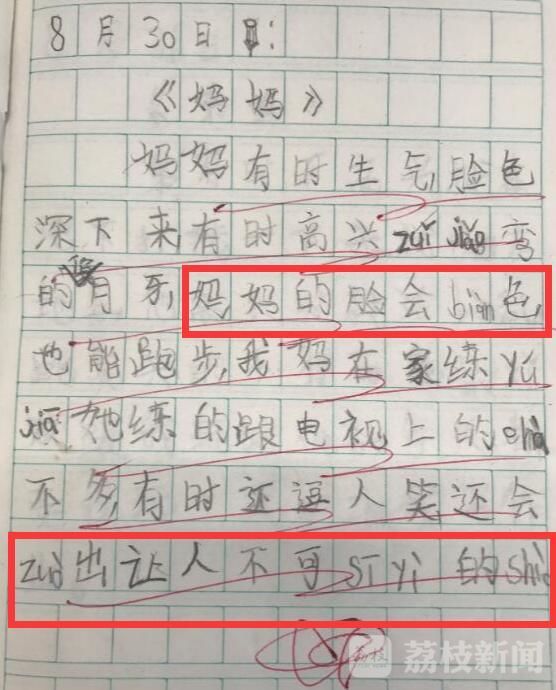 8月30日
《妈妈》
妈妈有时生气,脸色
深下来有时高兴zuǐ jiǎo弯
的月牙,妈妈的脸会bian色
也能跑步,我妈在家练yú
jiā她练的跟电视上的cha
不多,有时还逗人笑还会
zuò出让人不可sī yì的shì
荔枝新闻